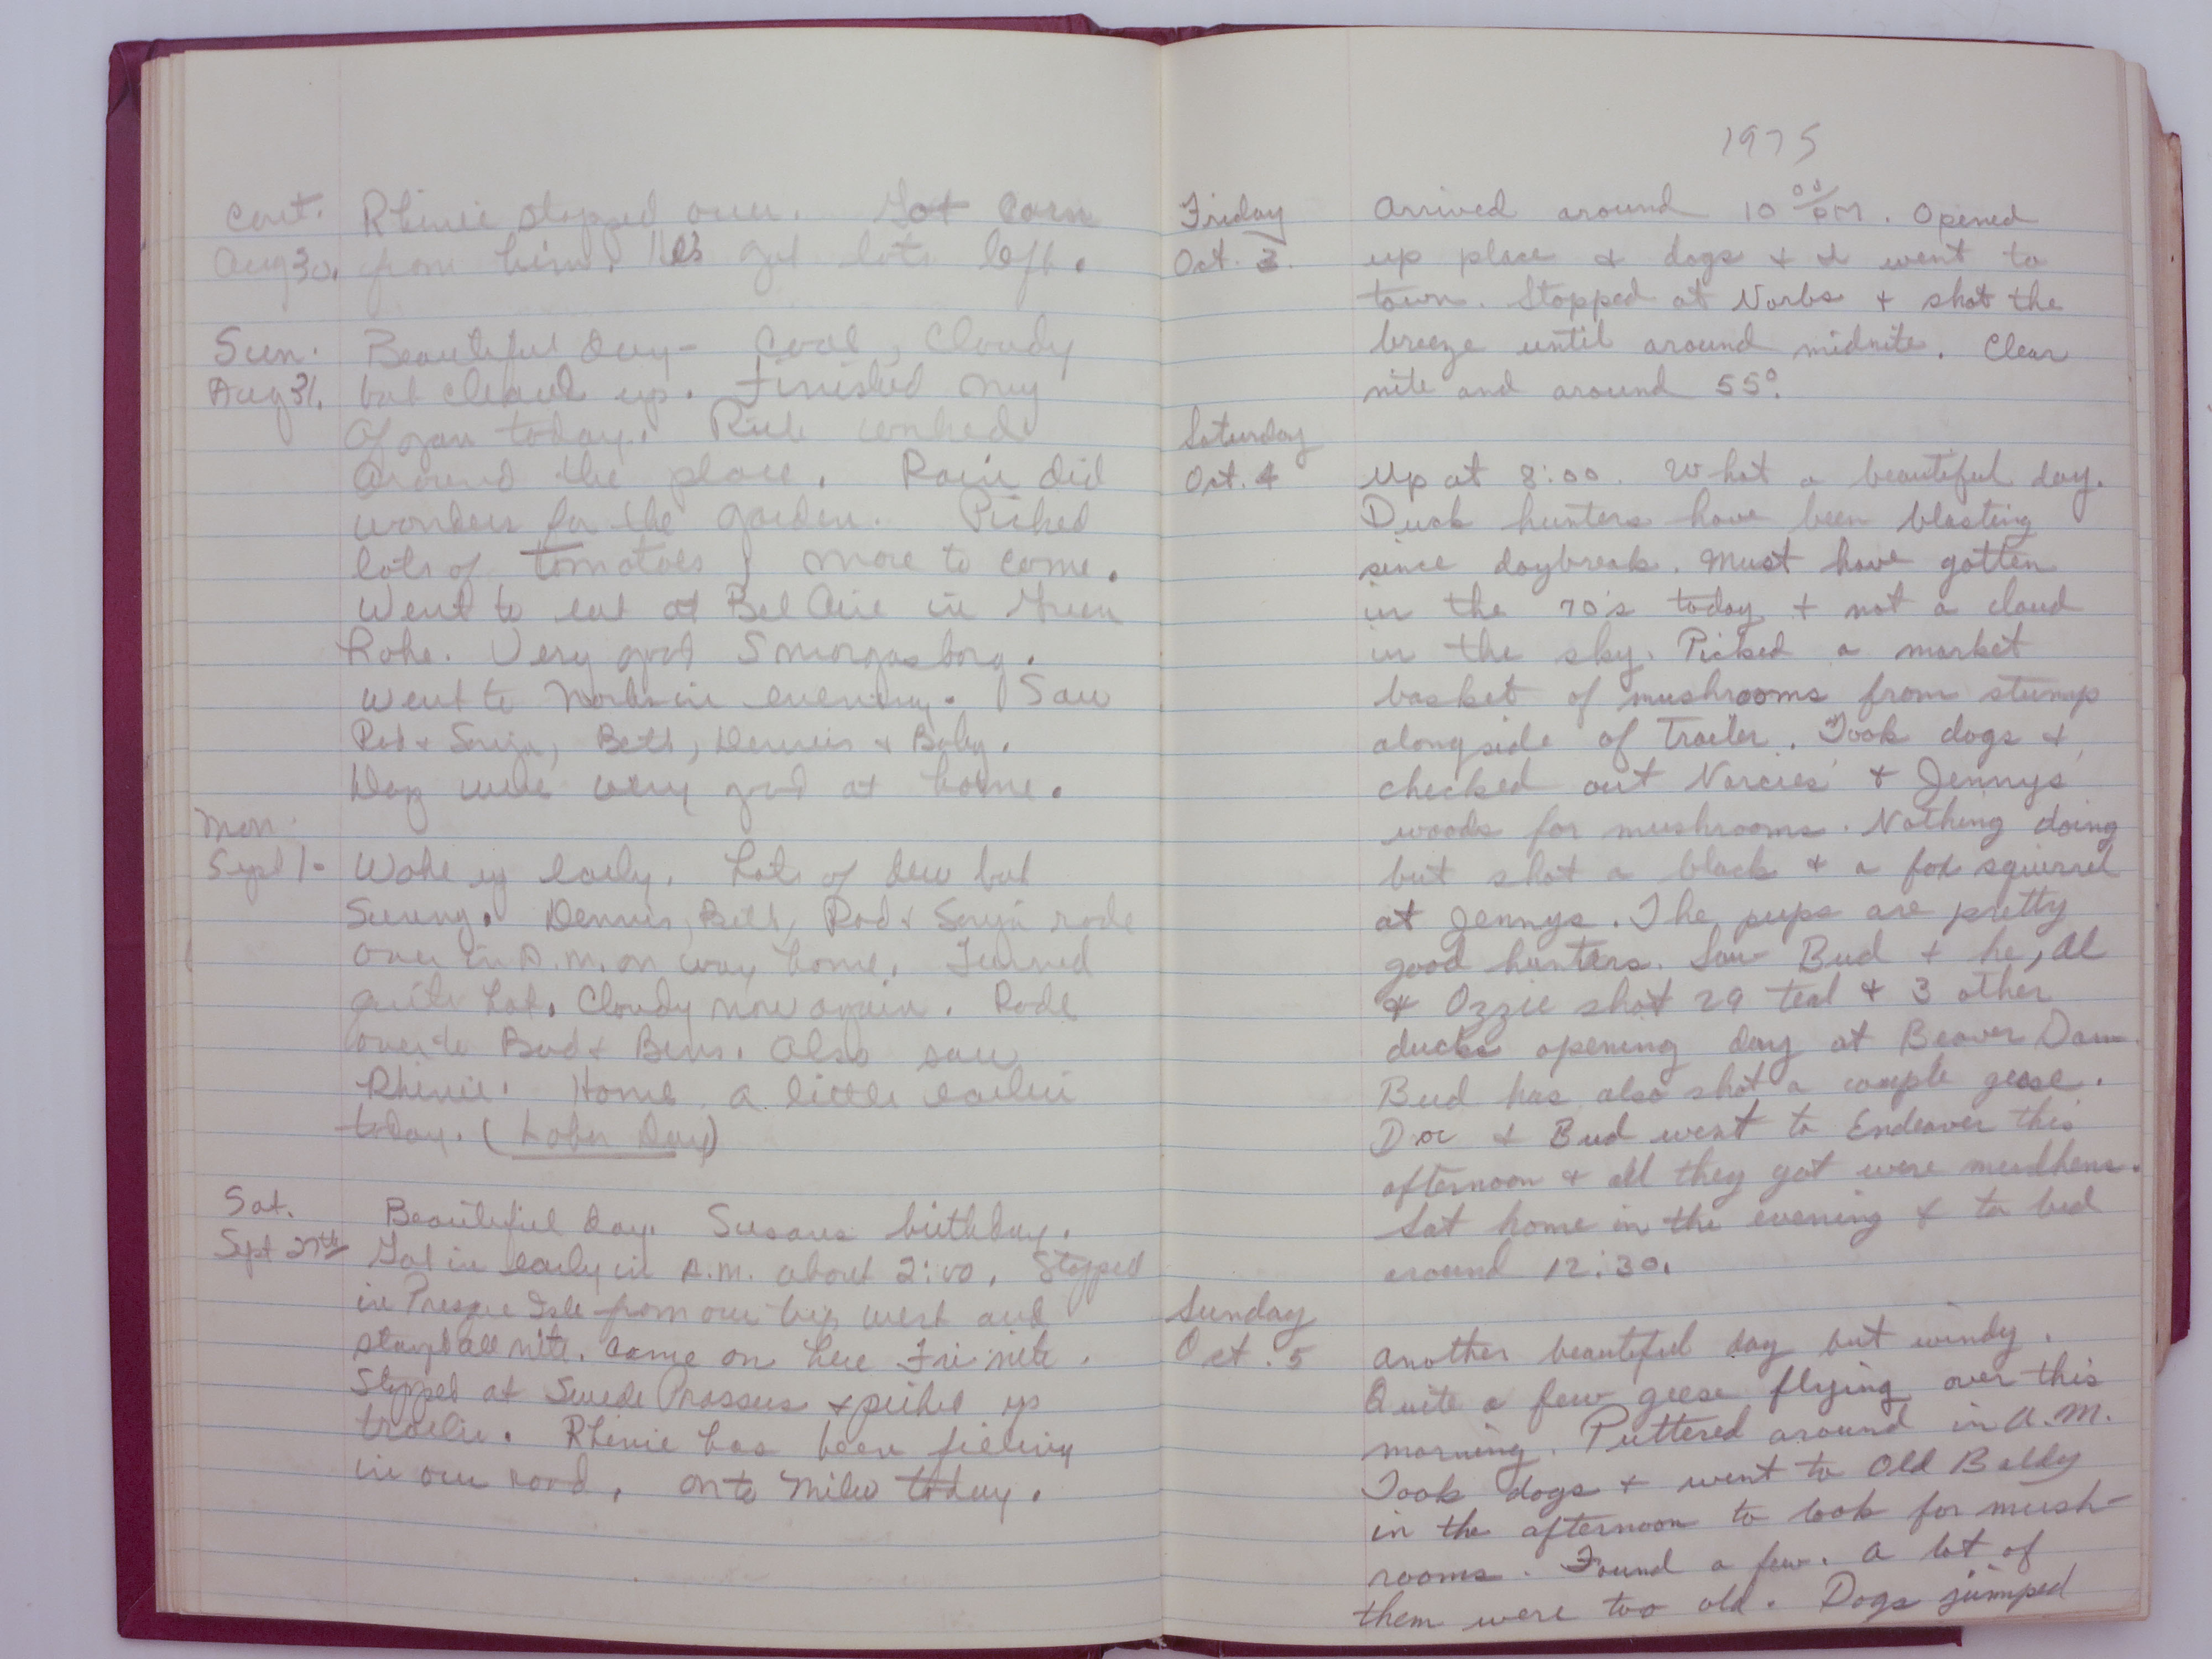 Cont. Rhinie stopped over. Got corn
Aug 30. from him. He's got lots left.
Sun. Beautiful Day - Cool, Cloudy
Aug 31. but cleared up. Finished my
Afgan today. Rich worked
Around the place. Rain did
wonders for the garden. Picked
lots of tomatoes & more to come.
Went to eat at Bel Aire in Green
Lake. Very good Smorgasborg.
Went to Norbs in evening. Saw
Rod & Sonja, Beth, Dennis & Baby.
were very good at home.
Mon.
Sept 1. Woke up early. Lots of dew but
Sunny. Dennis, Beth, Rod & Sonja rode
over in A.M. on way home. Turned
quite hot. Cloudy now again. Rode
over to Bud & Bevs. Also saw
Rhinie. Home a little earlier
today. (Labor Day)
Sat. Beautiful Day. Susans birthday.
Sept 27th Got in early in A.M. about 2:00. Stopped
in Presque Isle from our trip west and
stayed all nite. Came on here Fri nite.
Stopped at Swede & picked up
trailer. Rhinie has been filling
in our road. On to Milw today.
1975
Friday Arrived around 10 00/PM. Opened
Oct. 3. up place & dogs & I went to
town. Stopped at Norbs & shot the
breeze until around midnite. Clear
nite and around 55°.
Saturday
Oct. 4 Up at 8:00. What a beautiful day.
Duck hunters have been blasting
since daybreak. Must have gotten
in the 70's today & not a cloud
in the sky. Picked a market
basket of mushrooms from stump
alongside of Trailer. Took dogs &
checked out Narcies' & Jennys'
woods for mushrooms. Nothing doing
but shot a black & a fox squirrel
at Jennys. The pups are pretty
good hunters. Saw Bud & he, Al
& Ozzie shot 29 teal & 3 other
ducks opening day at Beaver Dam.
Bud has also shot a couple geese.
Doc & Bud went to Endeaver this
afternoon & all they got were mudhens.
Sat home in the evening & to bed
around 12:30.
Sunday
Oct. 5 Another beautiful day but windy.
Quite a few geese flying over this
morning. Puttered around in A.M.
Took dogs & went to Old Baldy
in the afternoon to look for mush-
rooms. Found a few. A lot of
them were too old. Dogs jumped